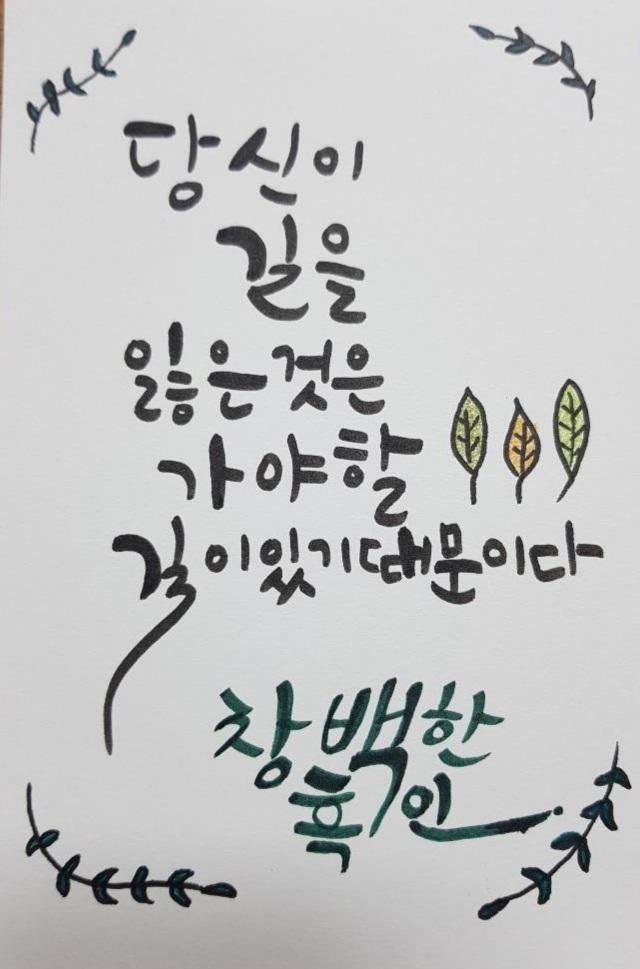 당신이
길을
잃은것은
가야할
길이있기때문이다
창백한
흑인